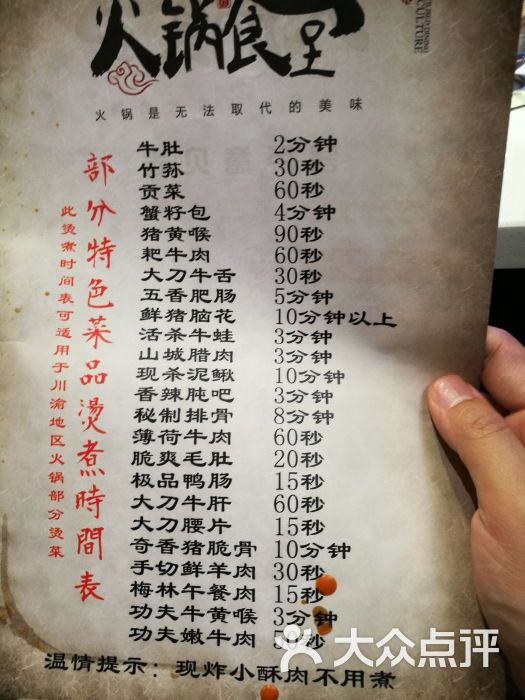 火锅食堂
CULTURE
火锅是无法取代的美味
部分特色菜品烫煮時間表
此烫煮时间表可适用于川渝地区火锅部分烫菜
牛肚 2分钟
竹荪 30秒
贡菜 60秒
蟹籽包 4分钟
猪黄喉 90秒
耙牛肉 60秒
大刀牛舌 30秒
五香肥肠 5分钟
鲜猪脑花 10分钟以上
活杀牛蛙 3分钟
山城腊肉 3分钟
现杀泥鳅 10分钟
香辣肫吧 3分钟
秘制排骨 8分钟
薄荷牛肉 60秒
脆爽毛肚 20秒
极品鸭肠 15秒
大刀牛肝 60秒
大刀腰片 15秒
奇香猪脆骨 10分钟
手切鲜羊肉 30秒
梅林午餐肉 15秒
功夫牛黄喉 3分钟
功夫嫩牛肉 秒
温情提示：现炸小酥肉不用煮
大众点评